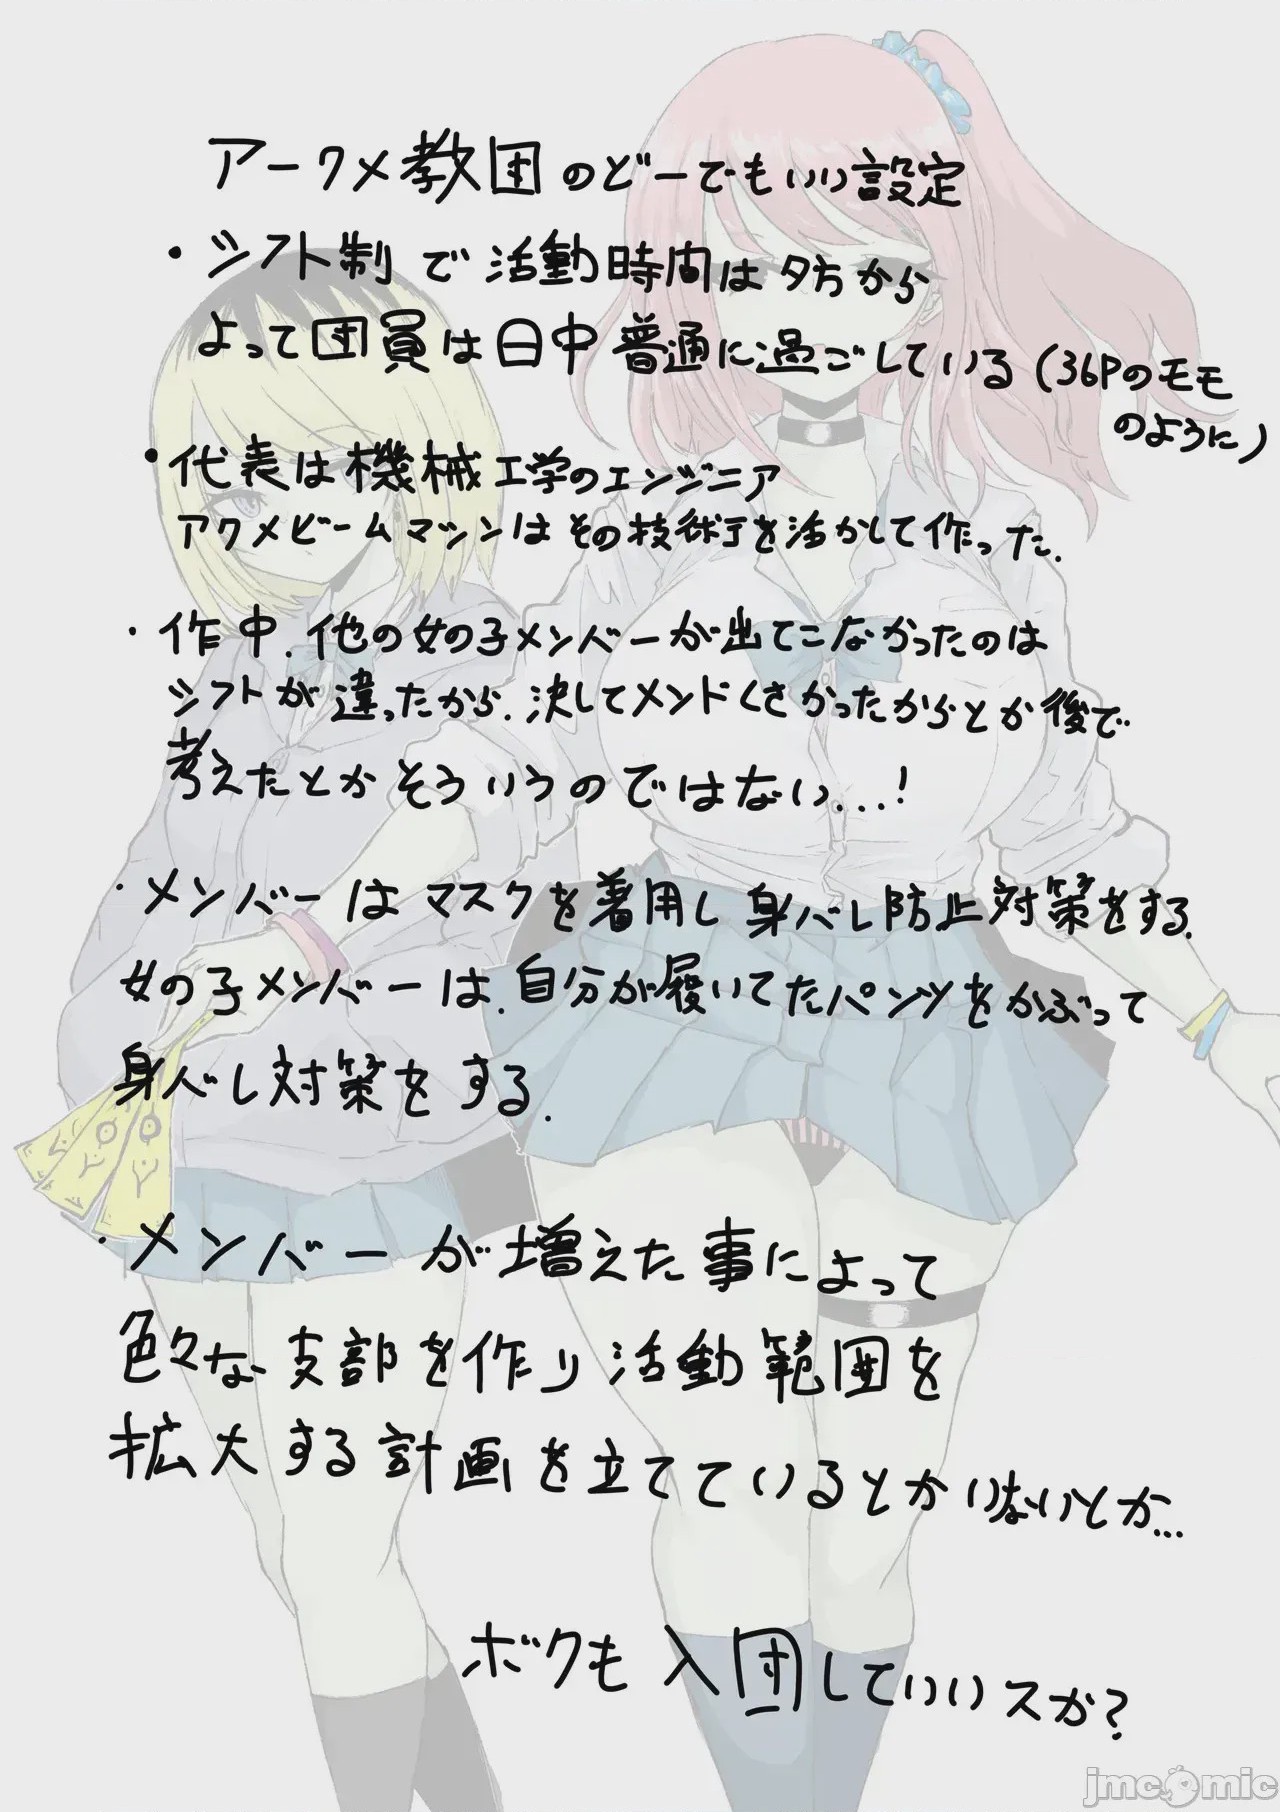 アークメ教団のどーでもいい設定
・シフト制で活動時間は夕方から
よって団員は日中普通に過ごしている(36Pのモモ
のように)
・代表は機械工学のエンジニア
アクメビームマシンはその技術を活かして作った.
・作中.他の女の子メンバーが出てこなかったのは
シフトが違ったから.決してメンドくさかったからとか後で
考えたとかそういうのではない...!
・メンバーはマスクを着用し身バレ防止対策をする.
女の子メンバーは.自分が履いてたパンツをかぶって
身バレ対策をする.
・メンバーが増えた事によって
色々な支部を作り活動範囲を
拡大する計画を立てているとかいないとか...
ボクも入団していいスか?
jmcomic